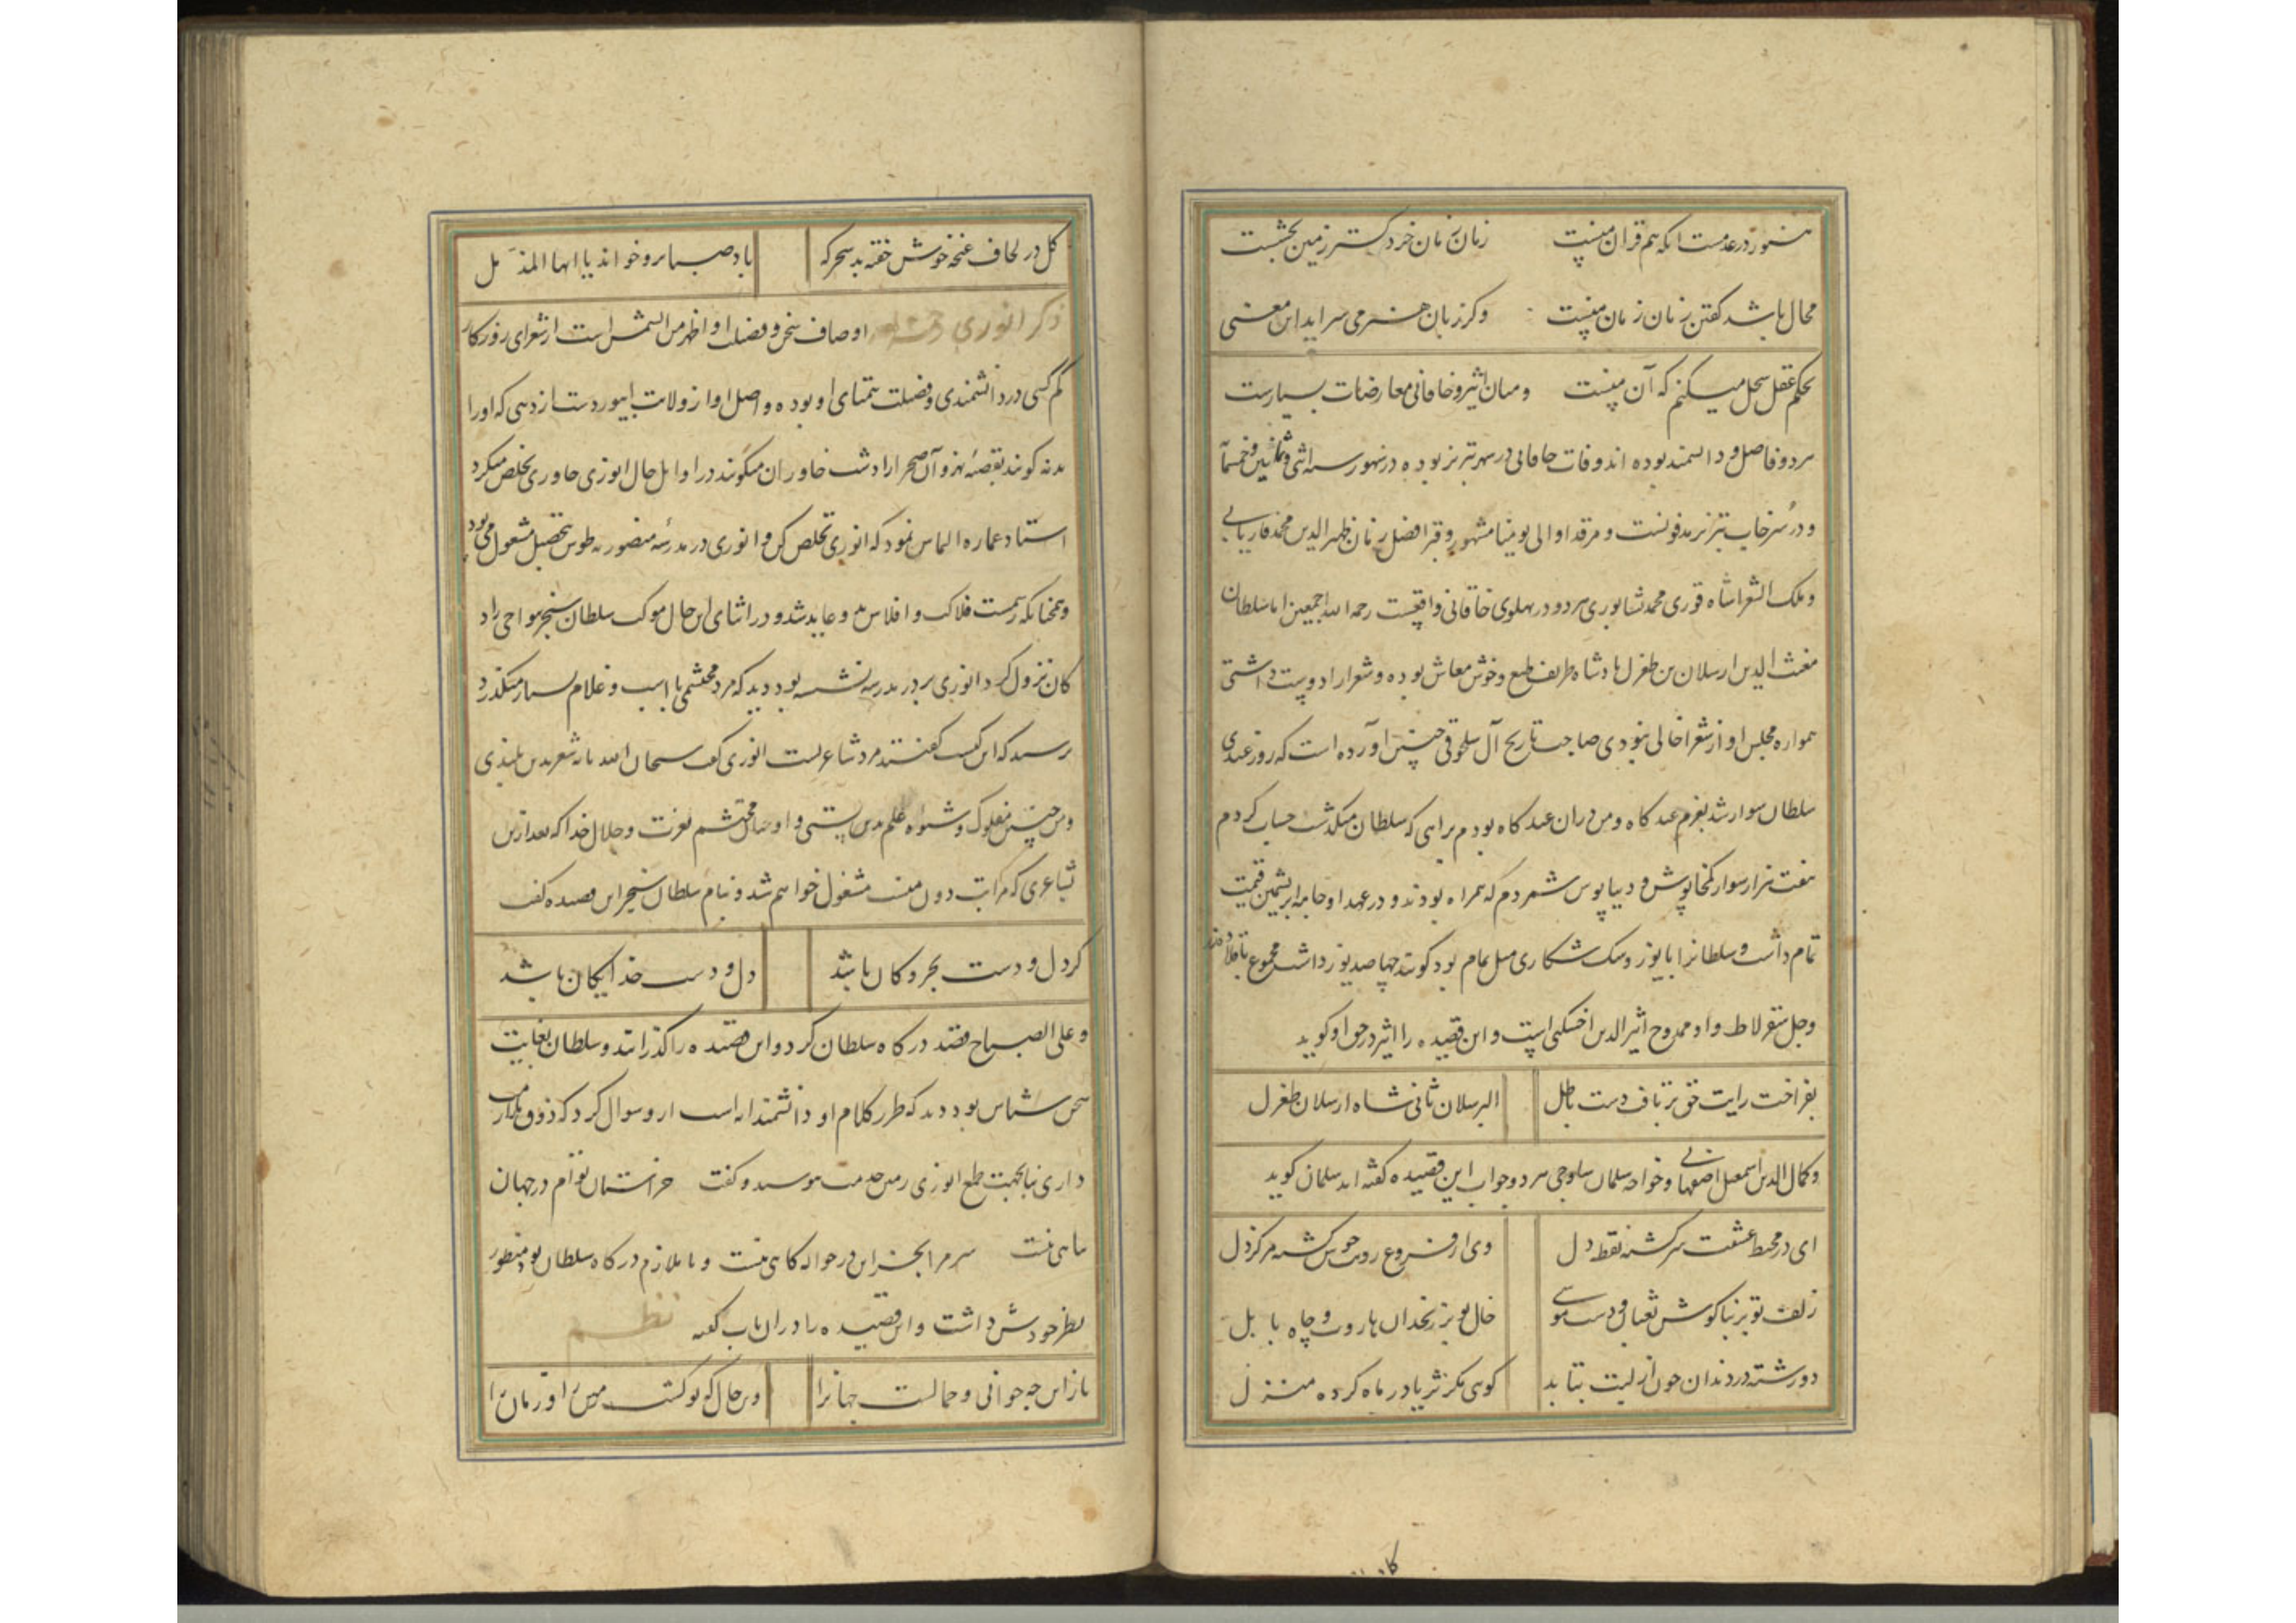 هنوز در عدمست آنکه هم قران منست زبان زمان خرد گستر زمین بخشست
محال باشد گفتن زمان زمان منست وگر زبان هنر می سراید این معنی
بحکم عقل سجل میکنم که آن منست ومیان اثیر و خاقانی معارضات بسیارست
هر دو فاضل و دانشمند بوده اند وفات خاقانی در شهر تبریز بوده در شهور سنه اثنی و ثمانین و خمسمائه
و در سرخاب تبریز مدفونست و مرقد او الی یومنا مشهور و قبر افضل زمان ظهیر الدین محمد فاریابی
و ملک الشعرا شاه فوری محمد نشابوری هر دو در پهلوی خاقانی واقعست رحمه الله اجمعین اما سلطان
مغیث الدین ارسلان بن طغرل پادشاه ظریف طبع و خوش معاش بوده و شعرا را دوست داشتی
همواره مجلس او از شعرا خالی نبودی صاحب تاریخ آل سلجوق چنین آورده است که روز عیدی
سلطان سوار شد بعزم عید گاه و من در ان عید گاه بودم براهی که سلطان میگذشت حساب کردم
هفت هزار سوار کمخا پوش و دیبا پوش شمردم که همراه بودند و در عهد او جامه ابریشمین قیمت
تمام داشت و سلطانرا با یوز و سک شکاری میل تمام بود گویند چهارصد یوز داشت مجموع با قلاده زر
وجل سقرلاط و او ممدوح اثیر الدین اخسیکتی است و این قصیده را اثیر در حق او گوید
بفراخت رایت حق بر تافت دست باطل الب ارسلان ثانی شاه ارسلان طغرل
وکمال الدین اسمعیل اصفهانی و خواجه سلمان ساوجی هر دو جواب این قصیده گفته اند سلمان گوید
ای در محیط عشقت سرگشته نقطه دل وی از فروغ رویت خوش گشته مرکز دل
زلف تو بر بناگوش ثعبان و دست موسی خال تو بر زنخدان هاروت و چاه بابل
دو رشته در دندان چون از لبت بتابد گوئی مگر ثریا در ماه کرده منزل
گل در لحاف غنچه خوش خفته بد سحرگه باد صبا برو خواند یا ایها المزمل
ذکر انوری اوصاف سخن و فضیلت او اظهر من الشمس است از شعرای روزگار
کم کسی در دانشمندی و فضیلت همتای او بوده و اصل او از ولایت ابیوردست از دهی که اورا
بدنه گویند بقصبه مهنه و آن صحرا را دشت خاوران میگویند در اوایل حال انوری خاوری تخلص میکرد
استاد عماره التماس نمود که انوری تخلص کن و انوری در مدرسه منصوریه طوس بتحصیل مشغول می بود
و همچنانکه رسمست فلاکت و افلاس بدو عاید شد و در اثنای این حال موکب سلطان سنجر بنواحی راد
کان نزول کرد انوری بر در مدرسه نشسته بود دید که مرد محتشمی با اسب و غلام بسیار میگذرد
پرسید که این کیست گفتند مرد شاعریست انوری گفت سبحان الله پایه شعر بدین بلندی
ومن چنین مفلوک و شیوه علم بدین پستی و او چنان محتشم بعزت و جلال خدا که بعد از این
بشاعری که مراتب دون منست مشغول خواهم شد و بنام سلطان سنجر این قصیده گفت
گر دل و دست بحر و کان باشد دل و دست خدایگان باشد
و علی الصباح قصد درگاه سلطان کرد و این قصیده را گذرانند و سلطان بغایت
سخن شناس بود دید که طرز کلام او دانشمندانه است ازو سوال کرد که ذوق ملازمت
داری یا بجهت طمع انوری زمین خدمت بوسید و گفت جز آستان توام در جهان
پناهی نیست سر مرا بجز این در حواله گاهی نیست و با ملازم درگاه سلطان بود منظور
نظر خودش داشت و این قصیده را در ان باب گفته نظم
باز این چه جوانی و جمالست جهانرا وین حال که نو گشت زمین را و زمان را